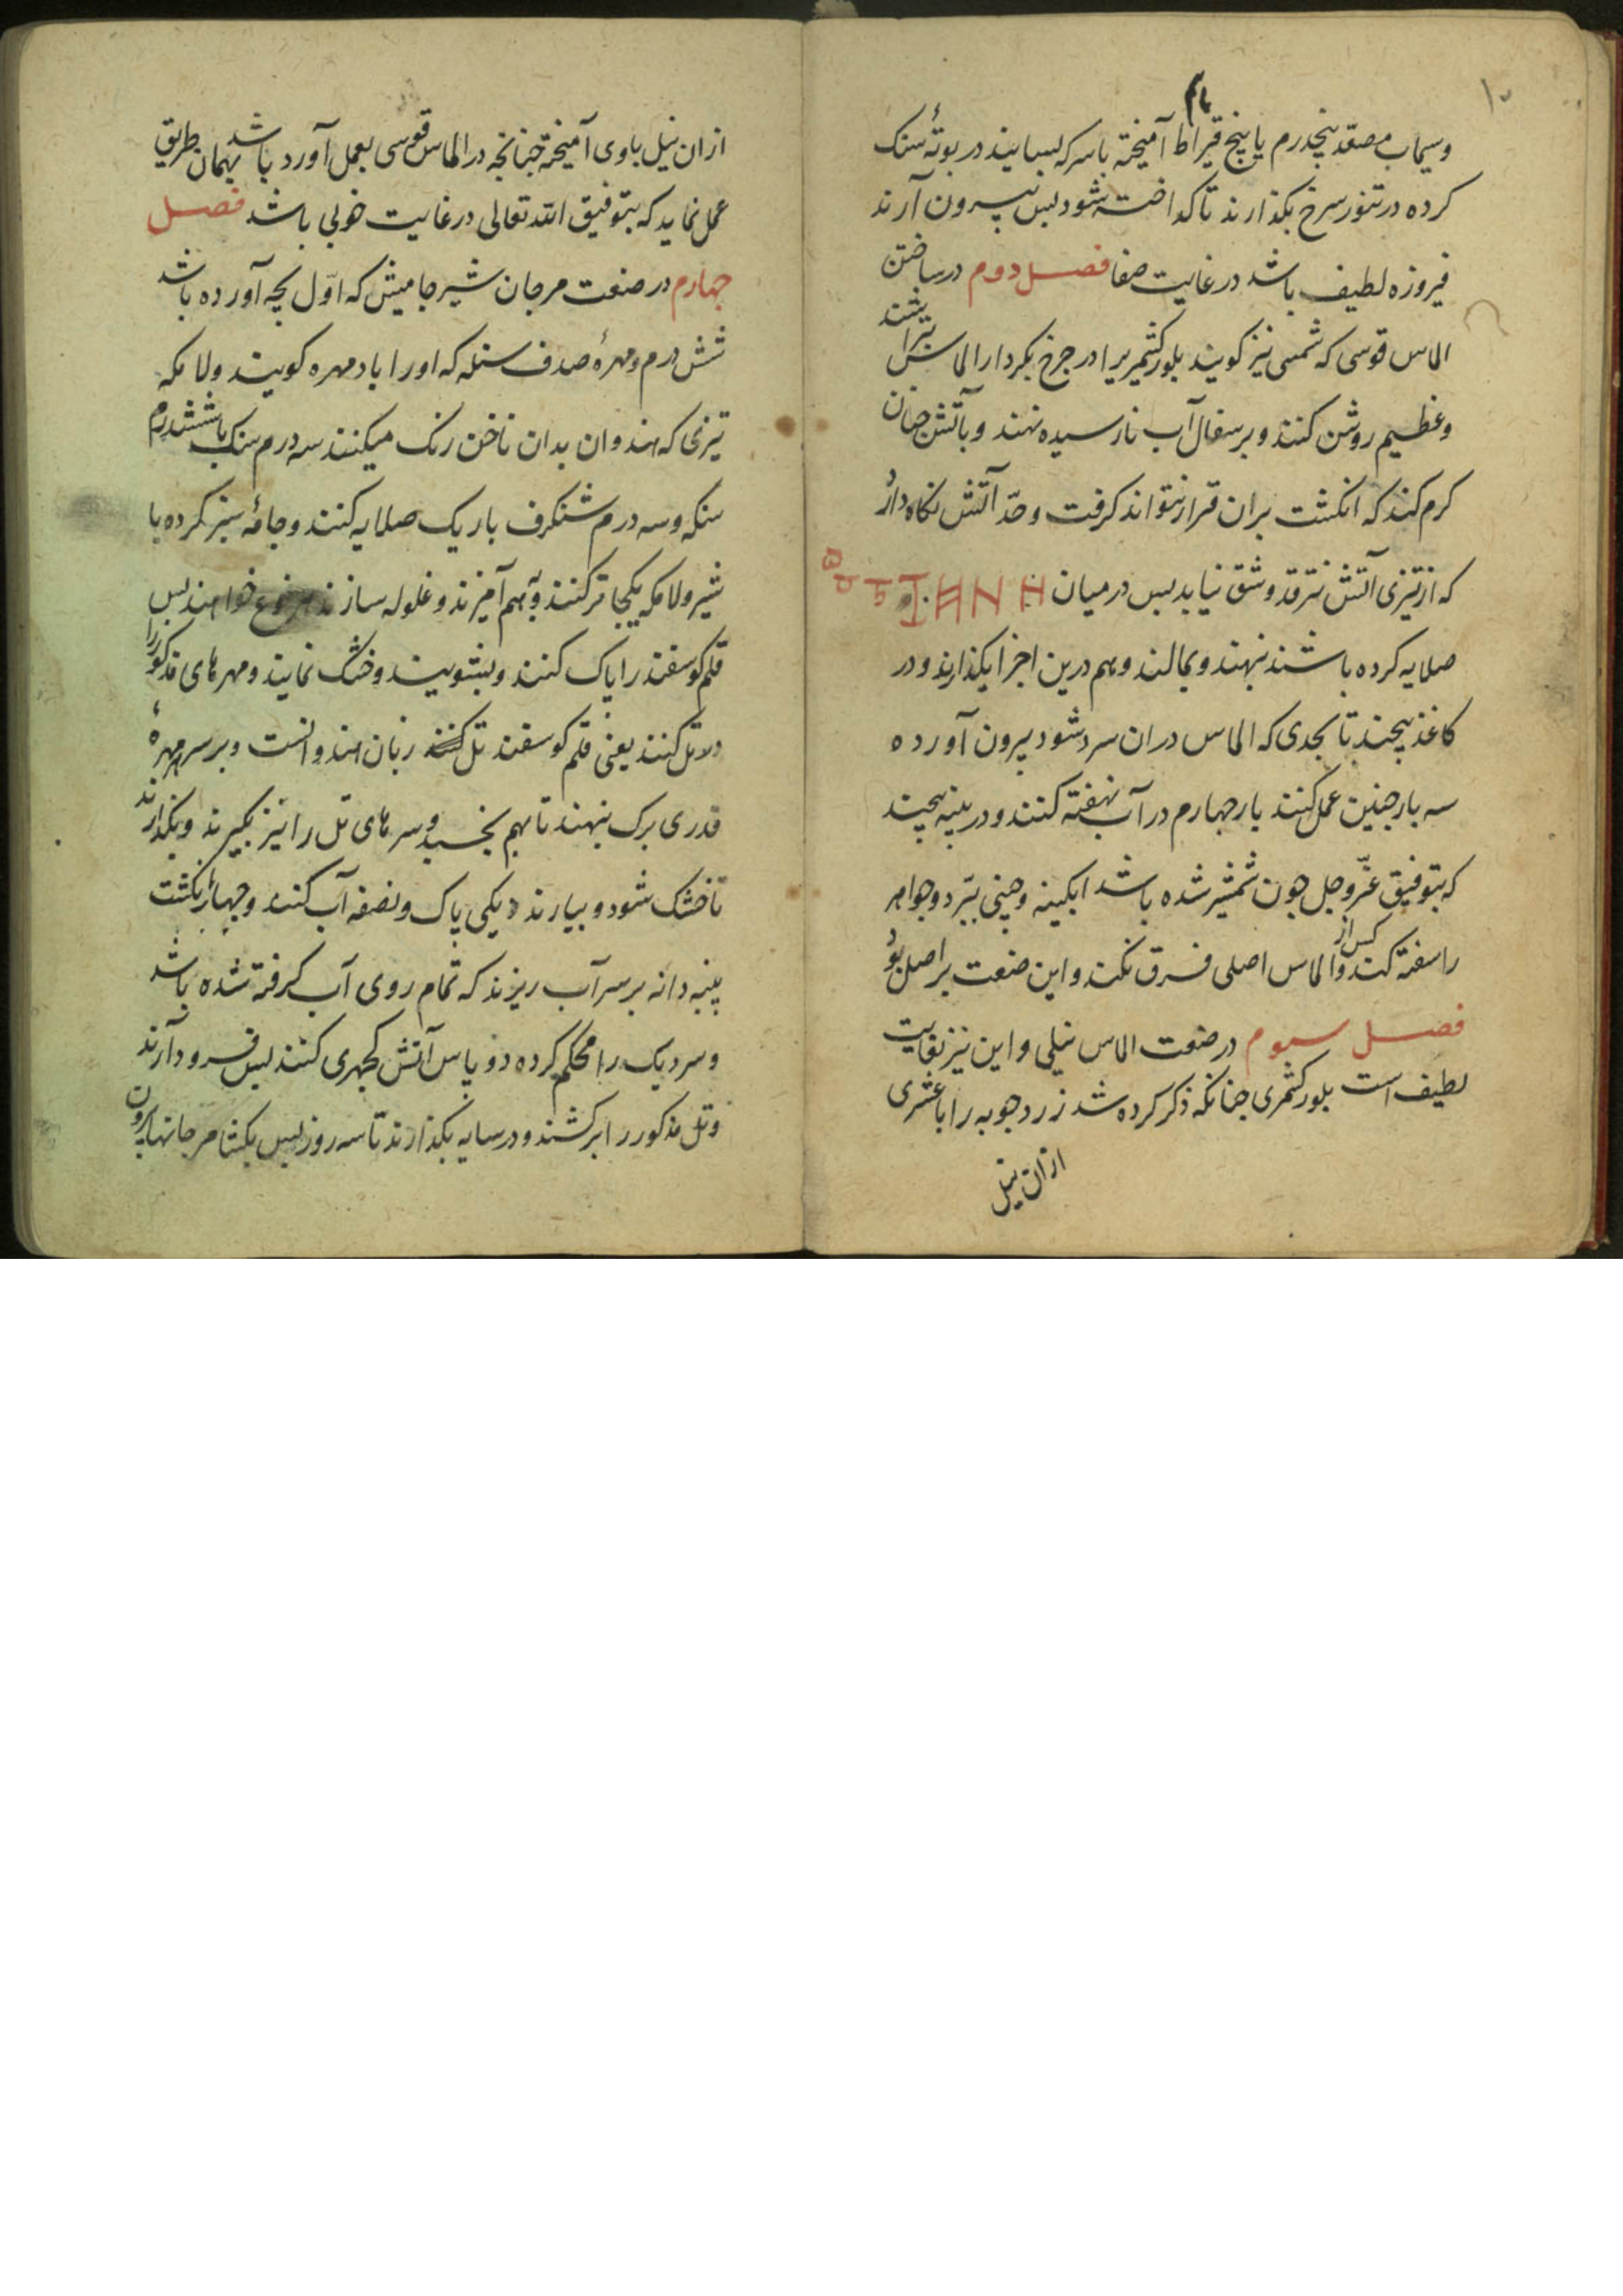 ۱۰
وسیماب مصعّد پنجدرم یا پنج قیراط آمیخته با سرکه بسایند در بوتهٔ سنک
کرده در تنور سرخ بکذارند تا کداخته شود پس بیرون آرند
فیروزه لطیف باشد در غایت صفا فصل دوم در ساختن
الماس قوسی که شمسی نیز کویند بلور کشمیریرا در چرخ بکردار الماس بتراشند
وعظیم روشن کنند و بر سفال آب نارسیده نهند و بآتش چنان
کرم کند که انکشت بران قرار نتواند کرفت و حدّ آتش نکاه دارد
که از تیزی آتش نترقد و شق نیابد پس در میان
صلایه کرده باشند نهند و بمالند و هم درین اجزا بکذارند و در
کاغذ پیچند تا بحدی که الماس دران سرد شود بیرون آورده
سه بار چنین عمل کنند بار چهارم در آب نهفته کنند و در پنبه پیچند
که بتوفیق عزّ و جل چون شمشیر شده باشد ابکینه و چینی ببرد و جواهر
را سفته کند و کس از الماس اصلی فرق نکند و این صنعت بر اصل بود
فصل سیوم در صنعت الماس نیلی و این نیز بغایت
لطیف است بلور کشمری چنانکه ذکر کرده شد زرد چوبه را با عشری
ازان نیل
ازان نیل باوی آمیخته چنانچه در الماس قوسی بعمل آورد باشد بهمان طریق
عمل نماید که بتوفیق الله تعالی در غایت خوبی باشد فصل
چهارم در صنعت مرجان شیر جامیش که اوّل بچه آورده باشد
شش درم و مهرهٔ صدف سنکه که اورا باد مهره کویند ولامکه
تیزی که هندوان بدان ناخن رنک میکنند سه درم سنک با ششدرم
سنکه و سه درم شنکرف باریک صلایه کنند و جامهٔ سبز کرده با
شیر ولامکه یکجا تر کنند و بهم آمیزند و غلوله سازند خواهند پس
قلم کوسفند را پاک کنند و بشویند و خشک نمایند و مهرهای مذکور را
دلا تل کنند یعنی قلم کوسفند تل زبان هندوانست و بر سر مهره
قدری برک نهند تا بهم بخسبد و سرهای تل را نیز بکیرند و بکذارند
تا خشک شود و بیارند دیکی پاک و نصفه آب کنند و چهار انکشت
پنبه دانه بر سر آب ریزند که تمام روی آب کرفته شده باشد
و سر دیک را محکم کرده دو پاس آتش کچهری کنند پس فرود آرند
و تل مذکور را برکشند و در سایه بکذارند تا سه روز پس بکشا مرجانها بیرون